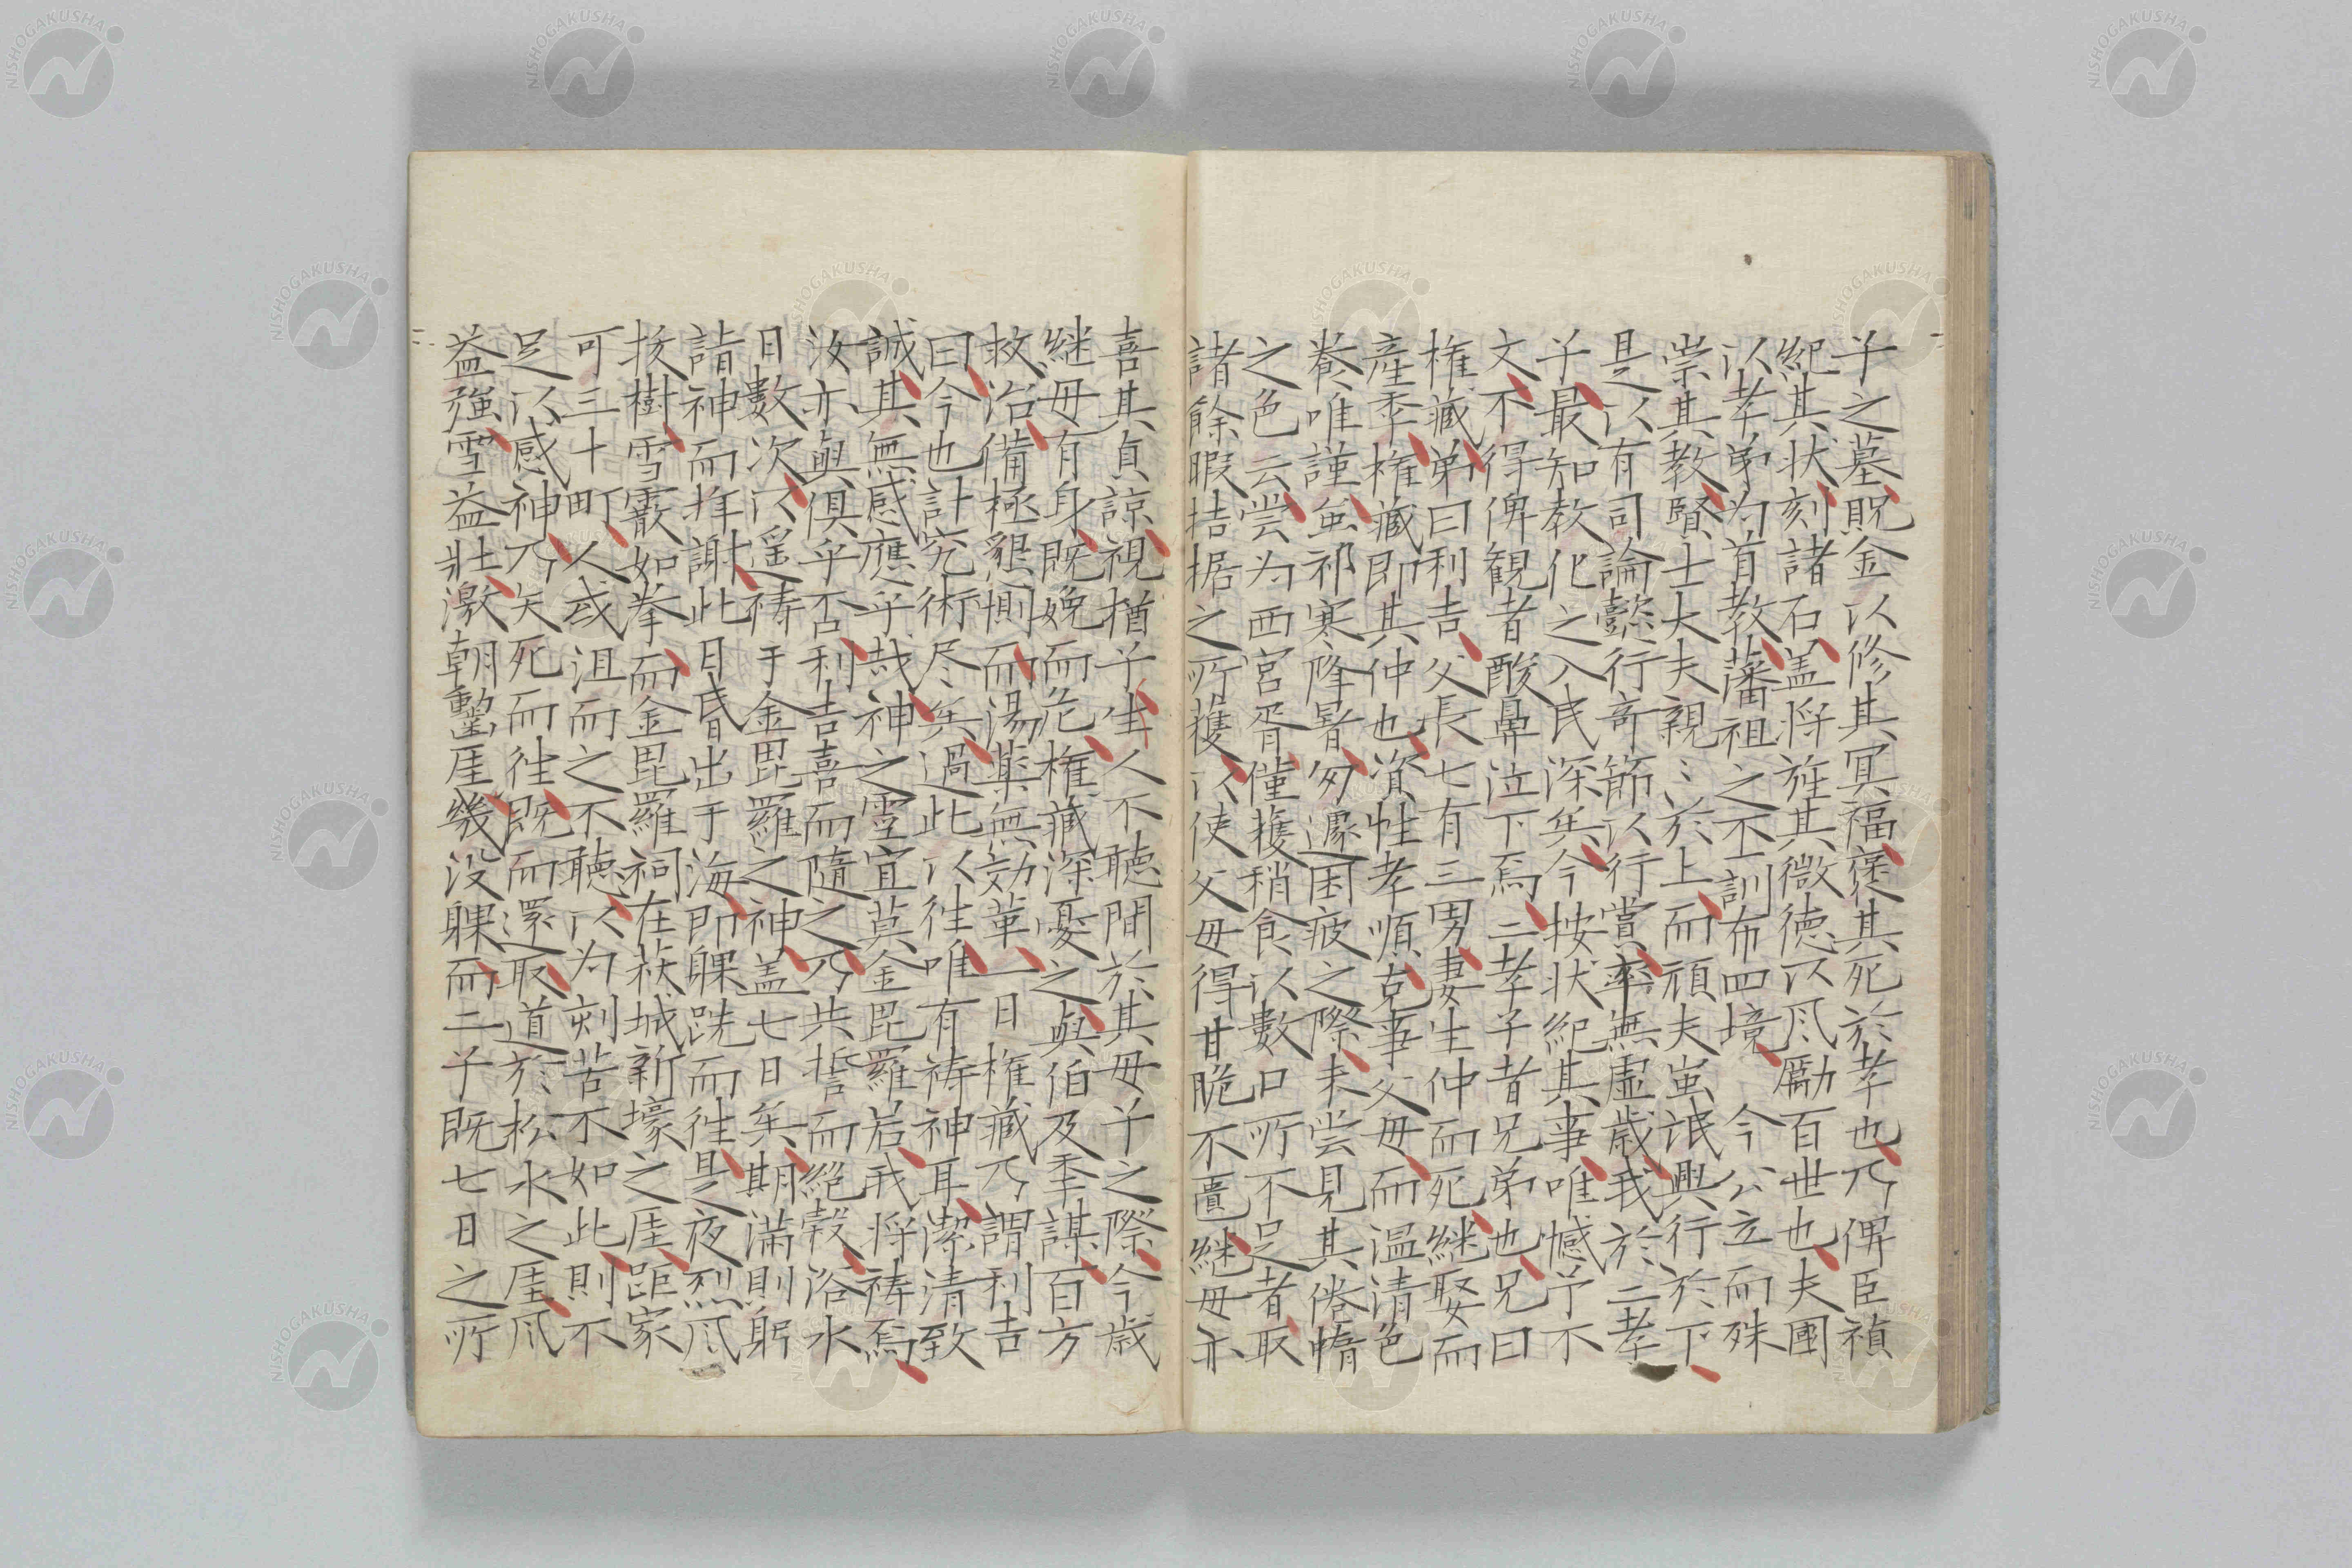 子之墓貺金以修其冥福褒其死於孝也乃俾臣禎
紀其状刻諸石盖将旌其微徳以凨勵百世也夫圑
以孝弟为首教藩祖之丕訓布四境今公立而殊
崇其教賢士大夫親〻於上而頑夫蚩氓興行於下
是以有司論懿行奇節以行賞率無虚歳我於二孝
子最知教化之入民深矣今按状紀其事唯憾予不
文不得俾観者酸鼻泣下焉二孝子者兄弟也兄曰
権蔵弟曰利吉父長七有三男妻生仲而死継娶而
産季権蔵即其仲也資性孝順克事父母而温清色
養唯謹虽祁寒隆暑匆遽困疲之際未尝見其倦惰
之色云尝为西宮胥僅獲稍食以數口所不足者取
諸餘暇拮据之所獲以使父母得甘脆不匱継母亦
喜其貞諒視猶子生人不聴間於其母子之際今歳
継母有身既娩而危権蔵深憂之與伯及季謀百方
救治備極懇惻而湯薬無効革一日権蔵乃謂利吉
曰今也計究術尽矣過此以徃唯有祷神耳潔清致
誠其無感應乎哉神之霊宜莫金毘羅若我将祷焉
汝亦與俱乎否利吉喜而隨之乃共誓而絶穀浴水
日數次以遥祷于金毘羅之神盖七日矣期満則躬
詣神而拝謝此日昏出于海即躶跣而徃是夜烈凨
抜樹雪霰如拳而金毘羅祠在萩城新壕之厓距家
可三十町人或沮而之不聴以为刻苦不如此則不
足以感神乃矢死而徃既而還取道於松水之厓凨
益強雪益壮激朝鑿厓幾没躶而二子既七日之所